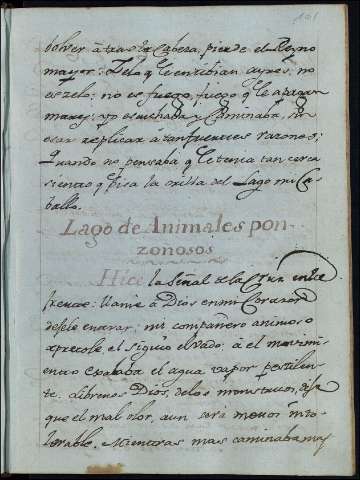 101
bolver á tras la Cabeza, pierde el Reyno
mayor: Zelo q̃ le entibian ayres, no
es zelo: no es fuego, fuego q̃ le apagan
mares; yo escuchaba, y Caminaba, sin
osar replicar á tan fuertes razones;
Quando no pensaba q̃ le tenia tan cerca
siento q̃ pisa la orilla del Lago mi Ca-
ballo.
Lago de Animales pon-
zonosos
Hice la Señal de la Cruz en la
frente: llamé á Dios en mi Corazon
deseé entrar; mi compañero animoso
el siguio el vado: á el movimi-
ento el agua vapor pestilen-
te. Libreme Dios, de los monstruos, dije
que el mal olor, aun será menos into-
lerable. Mientras mas caminaba mas